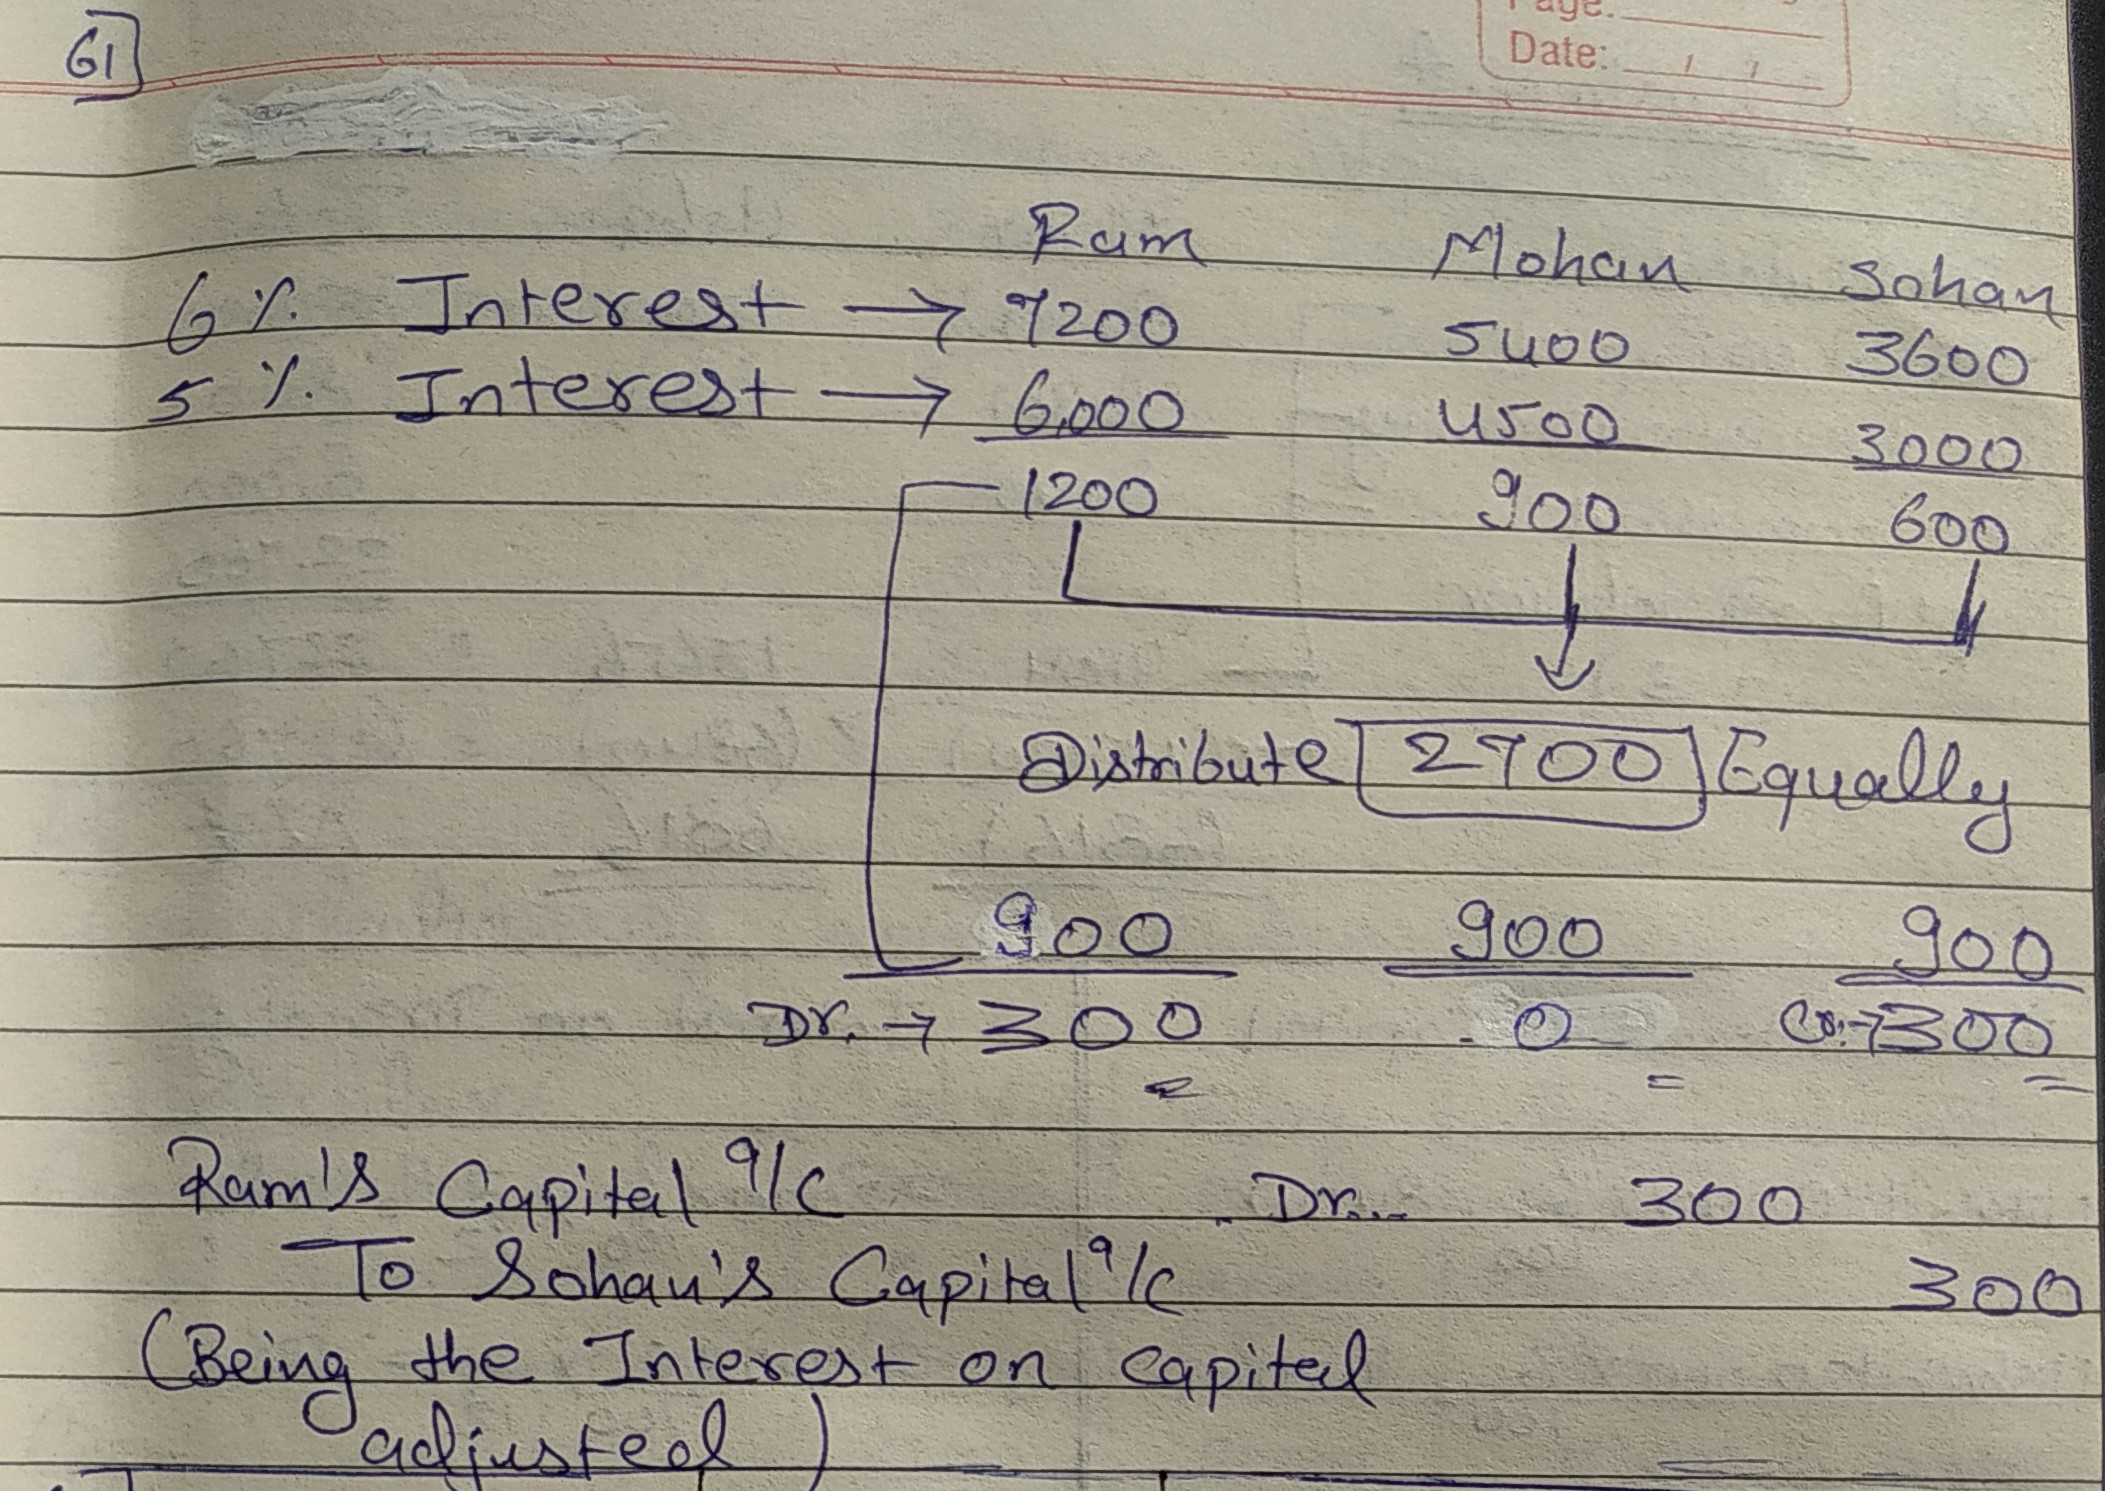 Page:
Date:
61
Ram Mohan Sohan
6 % Interest → 7200 5400 3600
5 % Interest → 6,000 4500 3000
1200 900 600
Distribute 2700 Equally
900 900 900
Dr. → 300 0 Cr. → 300
Ram's Capital a/c Dr... 300
To Sohan's Capital a/c 300
(Being the Interest on capital
adjusted)